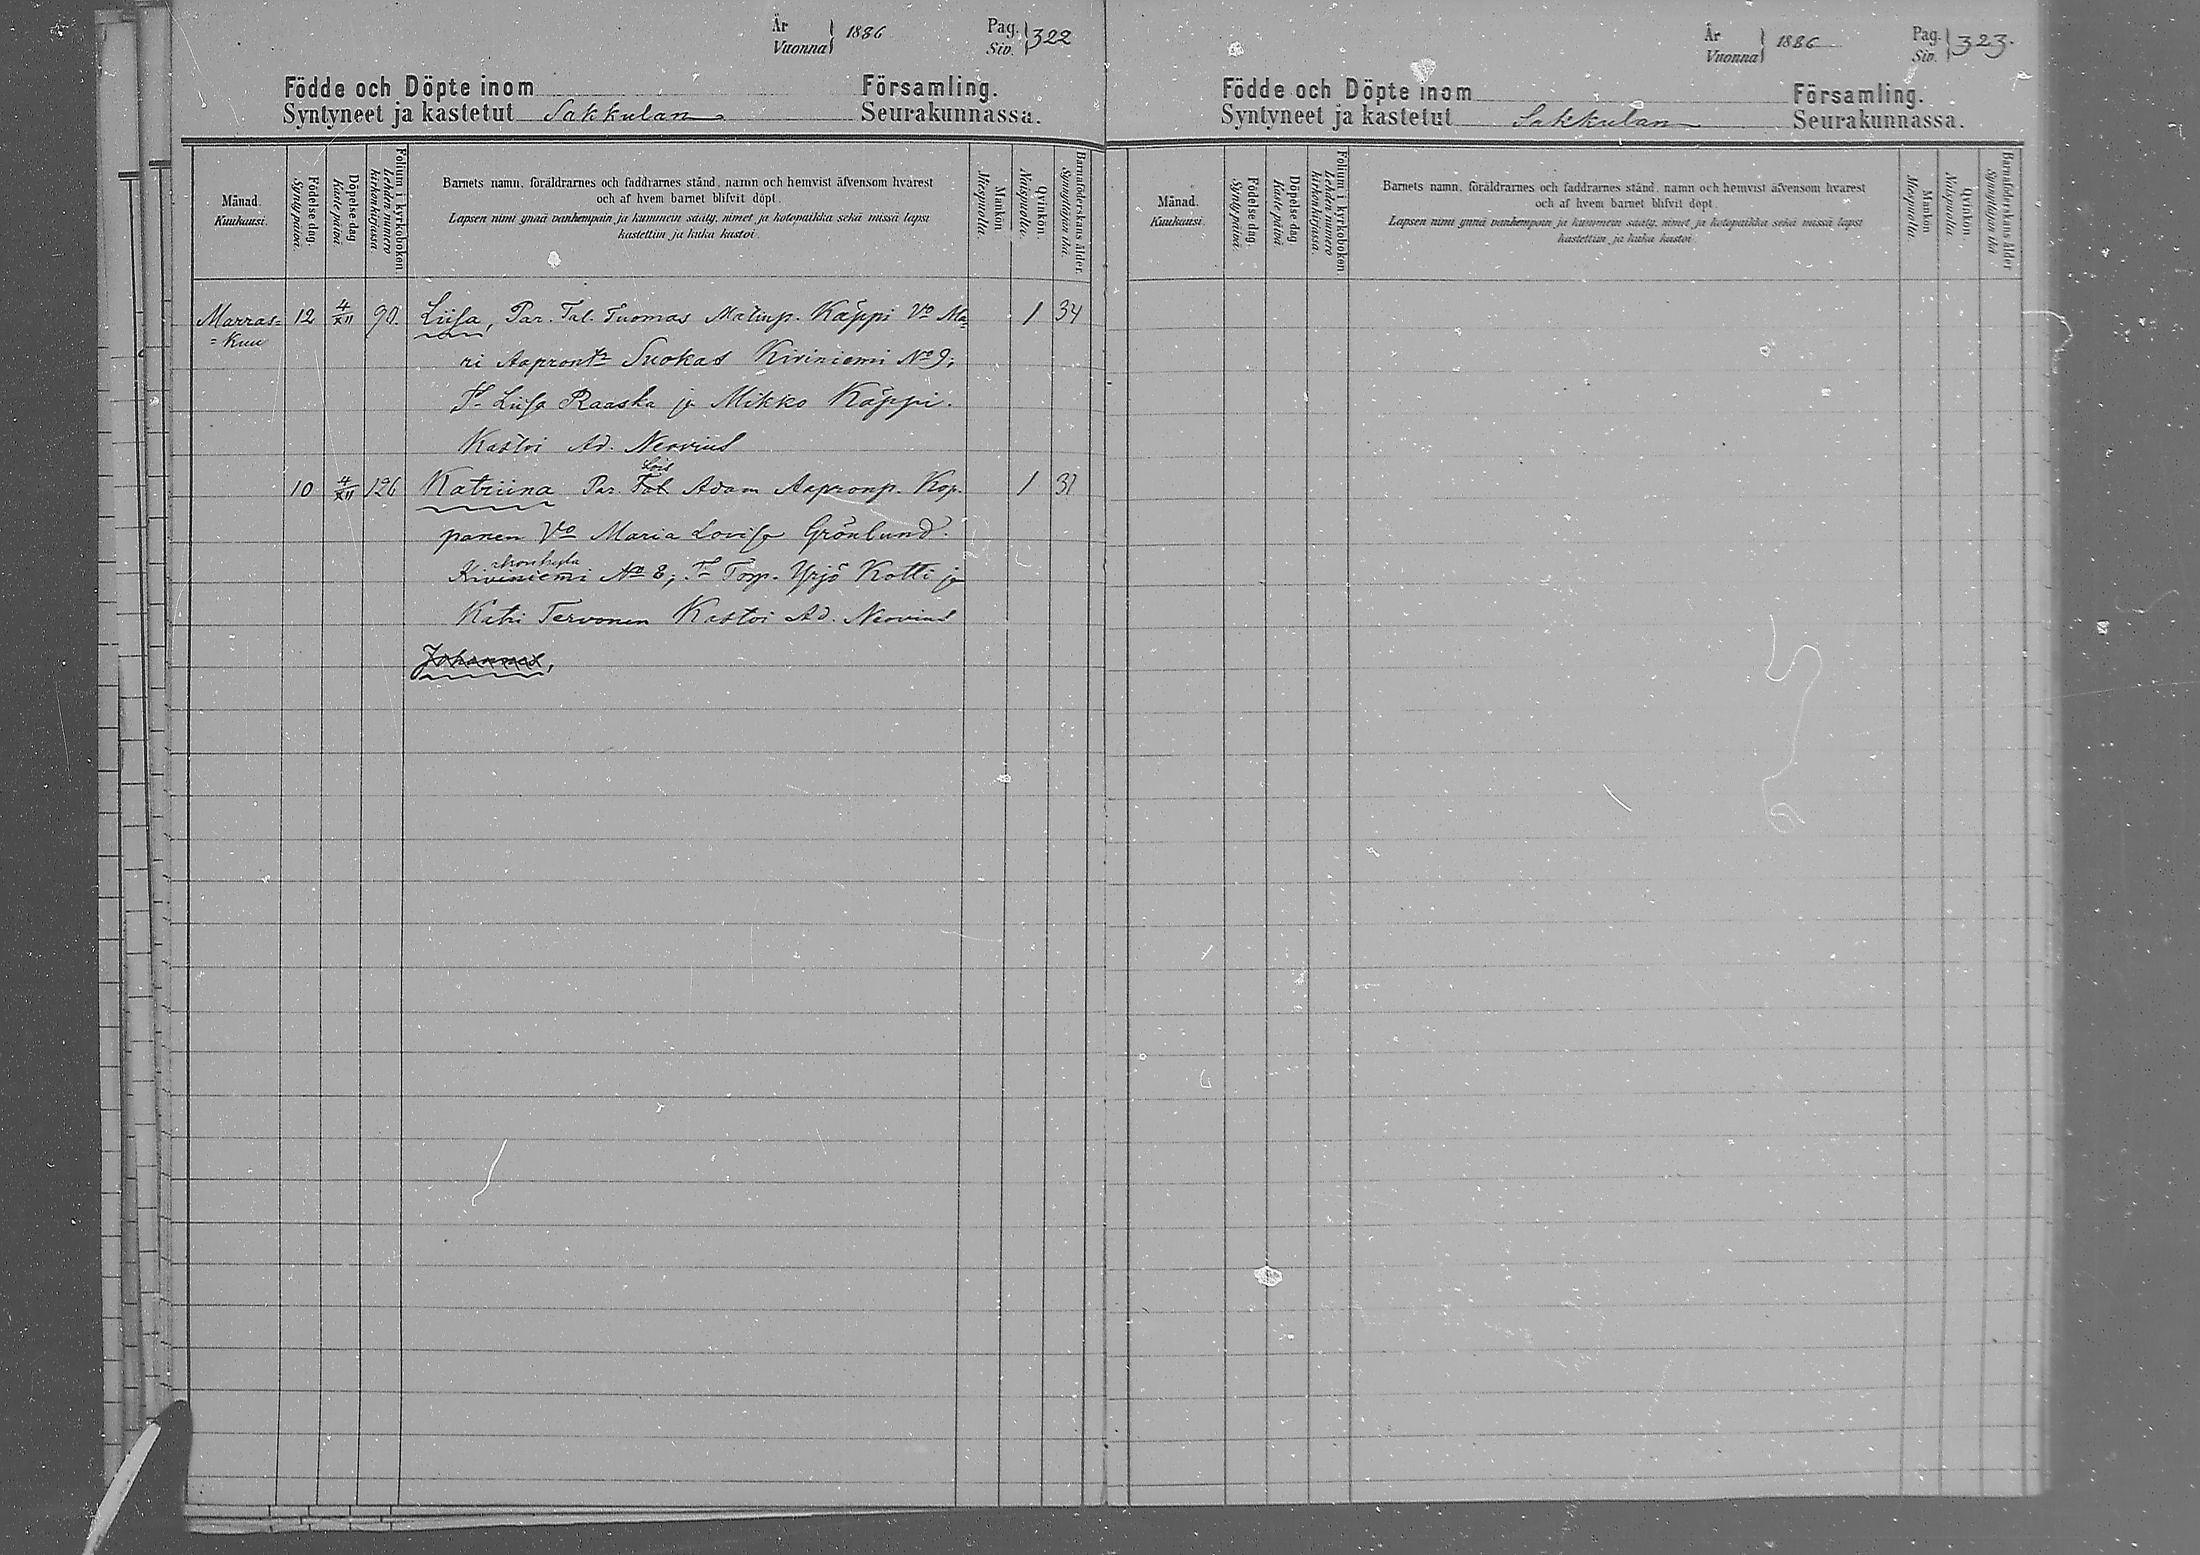 År
Vuonna } 1886
Pag.
Siv. } 322
Födde och Döpte inom Församling.
Syntyneet ja kastetut Sakkulan Seurakunnassa.
Månad.
Kuukausi.
Födelse dag.
Syntypäivä.
Döpelse dag
Kastepäivä
Folium i kyrkoboken
Lehden numero
kirkonkirjassa.
Barnets namn, föräldrarnes och faddrarnes stånd, namn och hemvist äfvensom hvarest
och af hvem barnet blifvit döpt.
Lapsen nimi ynnä vanhempain ja kummein sääty, nimet ja kotopaikka sekä missä lapsi
kastettiin ja kuka kastoi.
Mankön
Miespuolia.
Qvinkön.
Naispuolia.
Barnaföderskans ålder.
Synnyttäjän ikä.
Marras= 12 4/XII 90. Liisa, Par. Tal. Tuomas Matinp. Käppi Vo Ma= 1 34
=kuu
ri Aapront. Suokas Kiviniemi No 9;
T. Liisa Raaska ja Mikko Käppi.
Kastoi Ad. Neovius
Lois
10 4/XII 126 Katriina Par. Tal Adam Aapronp. Kop= 1 37
panen Vo Maria Lovisa Grönlund.
Kiviniemi No 8; T. Torp. Yrjö Kotti ja
Katri Tervonen Kastoi Ad. Neovius
Johannes,
År
Vuonna } 1886
Pag.
Siv. } 323.
Födde och Döpte inom Församling.
Syntyneet ja kastetut Sakkulan Seurakunnassa.
Månad.
Kuukausi.
Födelse dag.
Syntypäivä.
Döpelse dag
Kastepäivä
Folium i kyrkoboken
Lehden numero
kirkonkirjassa.
Barnets namn, föräldrarnes och faddrarnes stånd, namn och hemvist äfvensom hvarest
och af hvem barnet blifvit döpt.
Lapsen nimi ynnä vanhempain ja kummein sääty, nimet ja kotopaikka sekä missä lapsi
kastettiin ja kuka kastoi
Mankön
Miespuolia.
Qvinkön.
Naispuolia.
Barnaföderskans ålder
Synnyttäjän ikä